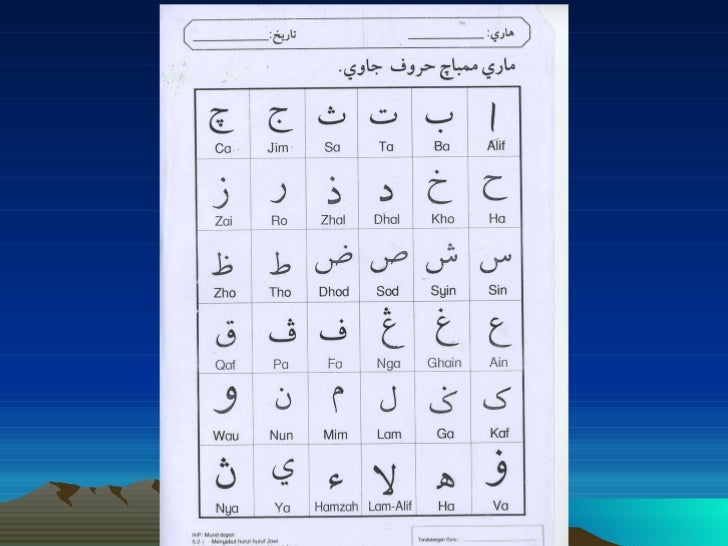 هاري: ____________ تاريخ: ____________
ماري ممباچ حروف جاوي.
ا ب ت ث ج چ
Alif Ba Ta Sa Jim Ca
ح خ د ذ ر ز
Ha Kho Dhal Zhal Ro Zai
س ش ص ض ط ظ
Sin Syin Sod Dhod Tho Zho
ع غ ڠ ف ڤ ق
Ain Ghain Nga Fa Pa Qaf
ک ݢ ل م ن و
Kaf Ga Lam Mim Nun Wau
ۏ ه لا ء ي ڽ
Va Ha Lam-Alif Hamzah Ya Nya
H/P: Murid dapat
5.2. i - Menyebut huruf-huruf Jawi
Tandatangan Guru :